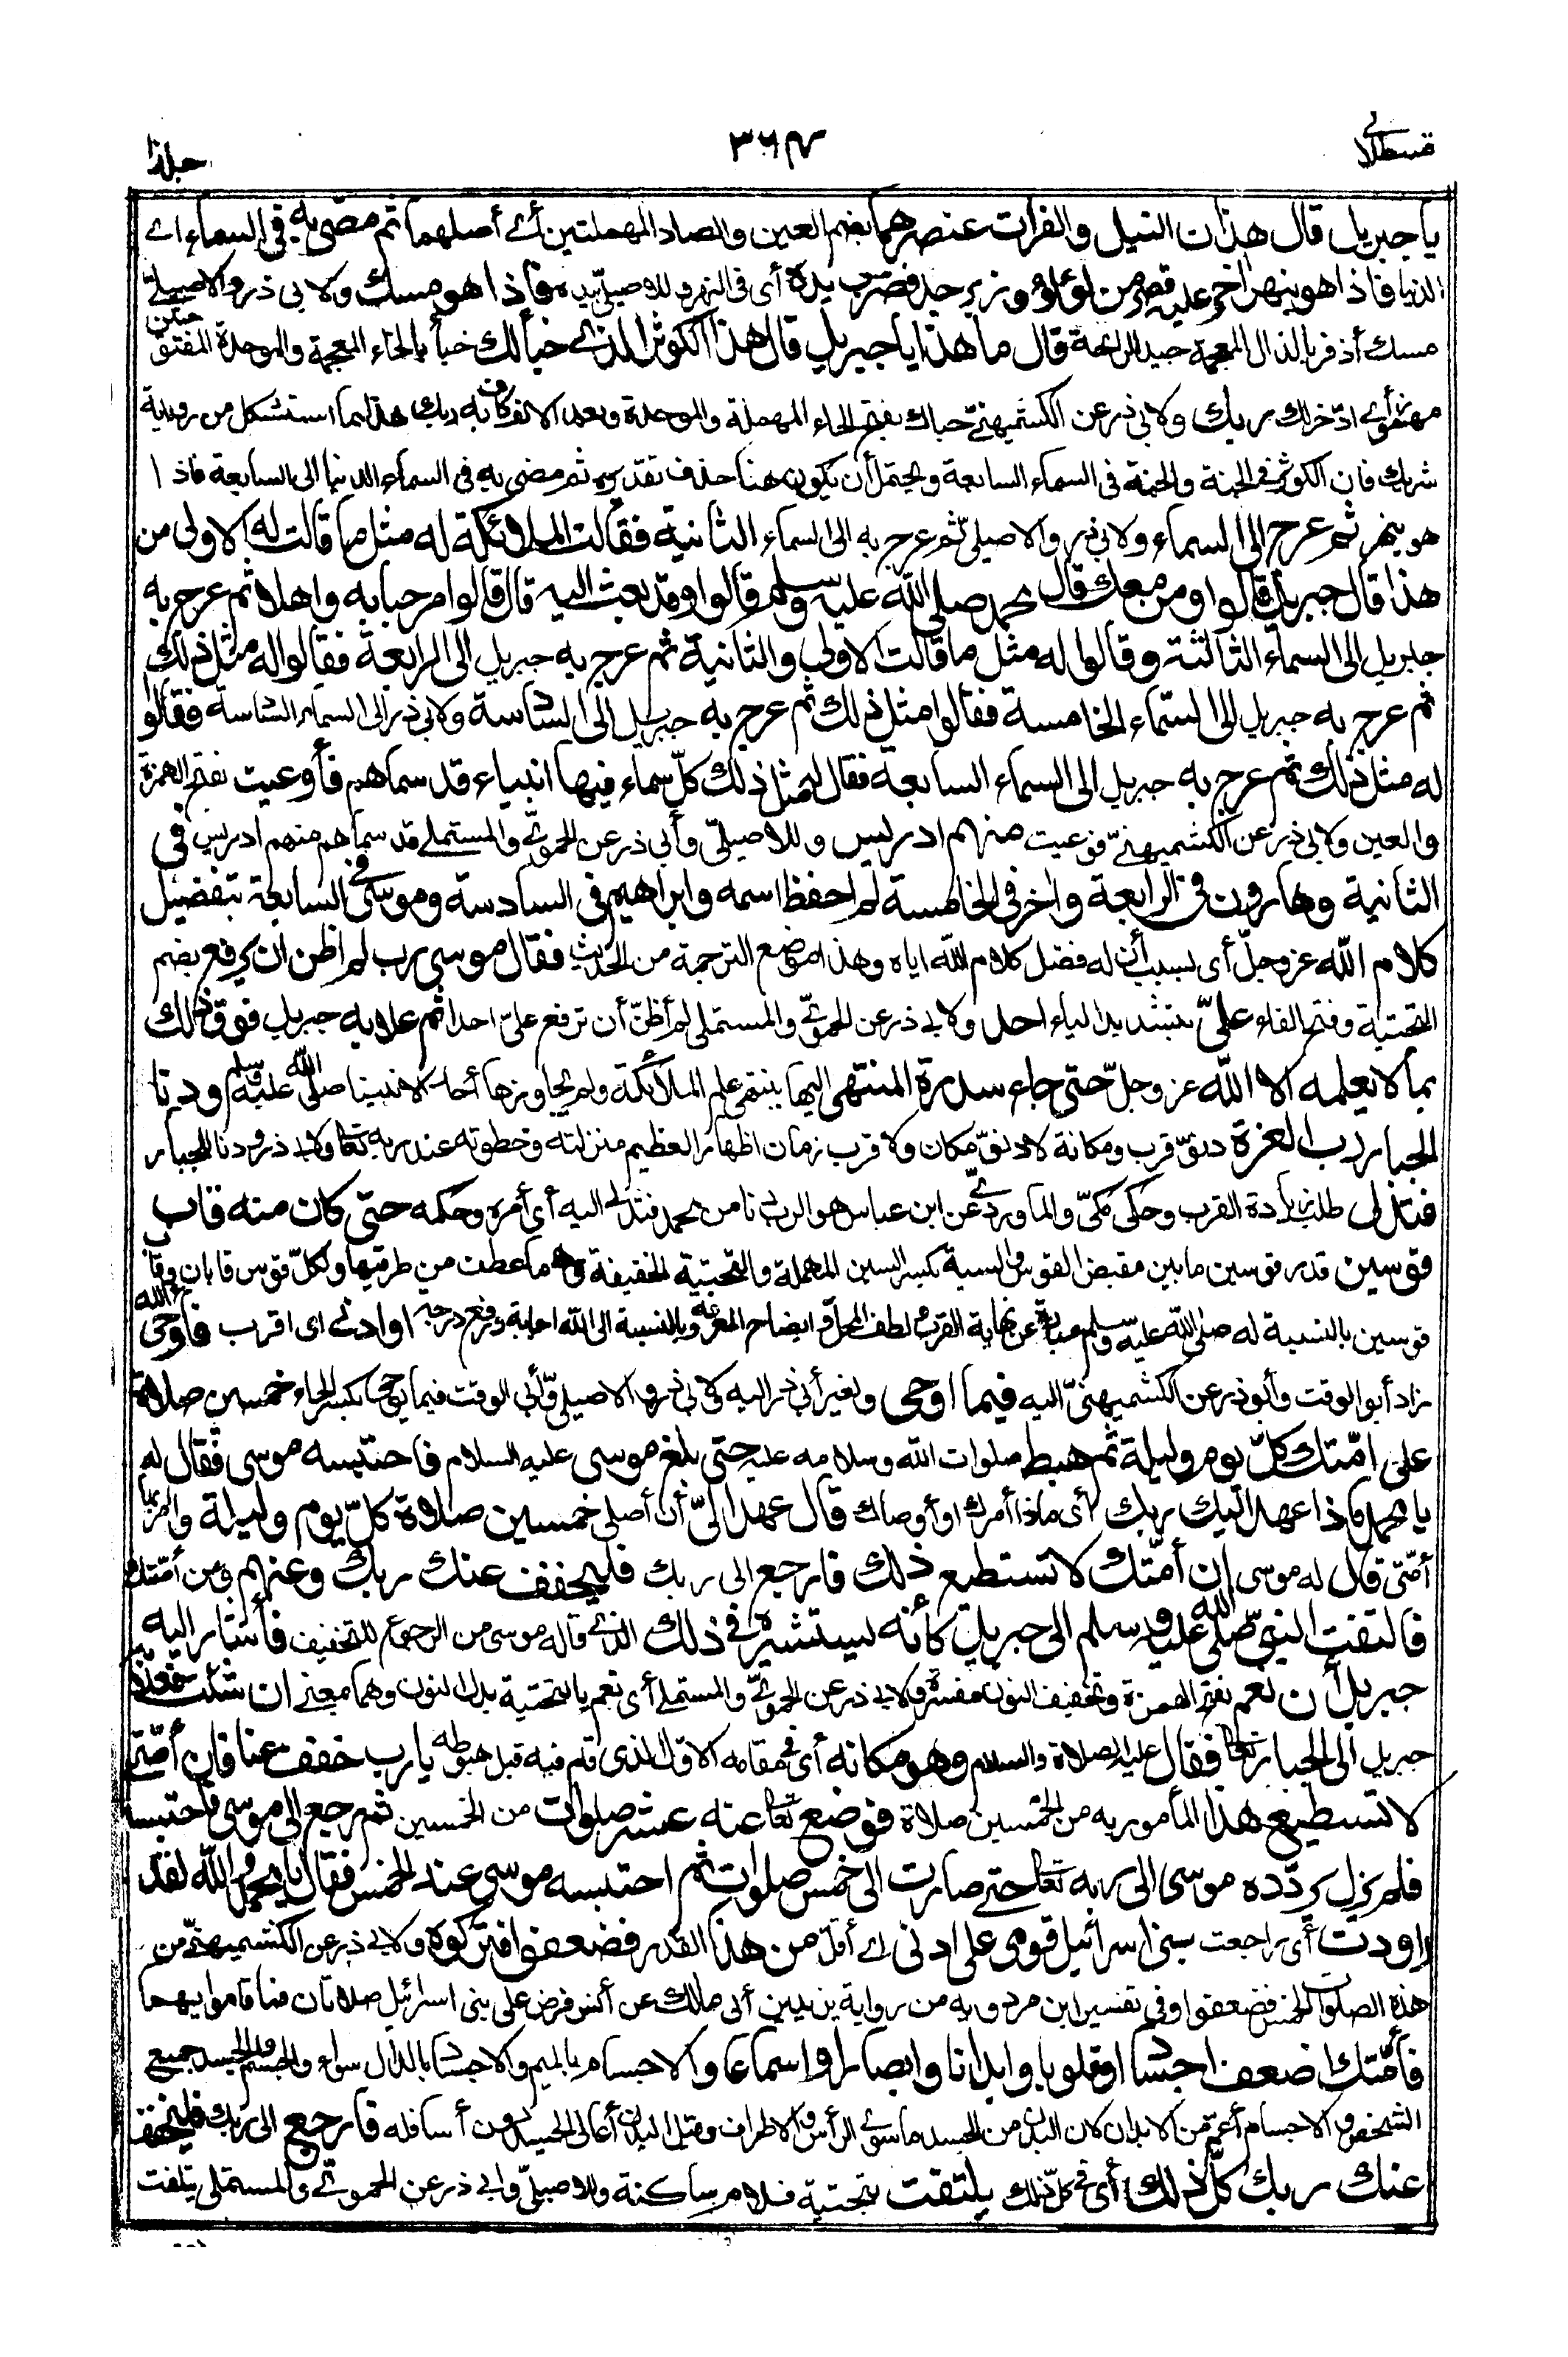 قسطلانی
٣٦٤
جلد١
يا جبريل قال هذان النيل والفرات عنصرهما بضم العين والصاد المهملتين أي أصلهما ثم مضى به في السماء اے
الدنيا فاذا هو بنهر اخر عليه قصر من لؤلؤ وزبرجد فضرب يده أي في النهر وللاصيلي بيده فاذا هو مسك ولابي ذر والاصيلي
مسك أذفر بالذال المعجمة جيد الرائحة قال ما هذا يا جبريل قال هذا الكوثر الذي خبألك خبأ بالخاء المعجمة والموحدة المفتوحتين
مهموز أي ادّخرلك ربك ولابي ذر عن الكشميهنيّ حباك بفتح الحاء المهملة والموحدة وبعد الالف كاف به ربك هذا مما استشكل من رواية
شريك فان الكوثر في الجنة والجنة في السماء السابعة ويحتمل أن يكون هنا حذف تقديره ثم مضى به في السماء الدنيا الى السابعة فاذا
هو بنهر ثم عرج الى السماء ولابي ذر والاصيليّ ثم عرج به الى السماء الثانية فقالت الملائكة له مثل ما قالت له الاولى من
هذا قال جبريل قالوا ومن معك قال محمد صلى الله عليه وسلم قالوا وقد بعث اليه قال قالوا مرحبا به واهلا ثم عرج به
جبريل الى السماء الثالثة وقالوا له مثل ما قالت الاولى والثانية ثم عرج به جبريل الى الرابعة فقالوا له مثل ذلك
ثم عرج به جبريل الى السماء الخامسة فقالوا مثل ذلك ثم عرج به جبريل الى السادسة ولابي ذر الى السماء السادسة فقالوا
له مثل ذلك ثم عرج به جبريل الى السماء السابعة فقال له مثل ذلك كلّ سماء فيها انبياء قد سماهم فأوعيت بفتح الهمزة
والعين ولابي ذر عن الكشميهنيّ فوعيت منهم ادريس وللاصيليّ وأبي ذر عن الحمويّ والمستملي قد سماهم منهم ادريس في
الثانية وهارون في الرابعة واخر في الخامسة لم احفظ اسمه وابراهيم في السادسة وموسى في السابعة بتفضيل
كلام الله عز وجلّ أي بسبب أن له فضل كلام الله اياه وهذا موضع الترجمة من الحديث فقال موسى رب لم اظن ان يرفع بضم
التحتية وفتح الفاء عليّ بتشديد الياء احد ولابي ذر عن الحمويّ والمستملي لم أظنّ أن ترفع عليّ احدا ثم علا به جبريل فوق ذلك
بما لا يعلمه الا الله عز وجلّ حتى جاء سدرة المنتهى اليها ينتهي علم الملائكة ولم يجاوزها أحد الا نبينا صلى الله عليه وسلم ودنا
الجبار رب العزة دنوّ قرب ومكانة لا دنوّ مكان ولا قرب زمان اظهارا لعظيم منزلته وحظوته عند ربه تعالى ولابي ذر ودنا للجبار
فتدلى طلب زيادة القرب وحكى مكيّ والماورديّ عن ابن عباس هو الرب دنا من محمد فتدلى اليه أي أمره وحكمه حتى كان منه قاب
قوسين قدر قوسين ما بين مقبض القوس والسية بكسر السين المهملة والتحتية الخفيفة وهي ما عطف من طرفيها ولكلّ قوس قابان وقاب
قوسين بالنسبة له صلى الله عليه وسلم عبارة عن نهاية القرب ولطف المحل وايضاح المعرفة وبالنسبة الى الله اجابة ورفع درجة او ادنى اى اقرب فأوحى الله
زاد أبو الوقت وأبو ذر عن الكشميهنيّ اليه فيما اوحى ولغير أبي ذر اليه ولابي ذر والاصيلي وأبي الوقت فيما يوحى بكسر الحاء خمسين صلاة
على امّتك كلّ يوم وليلة ثم هبط صلوات الله وسلامه عليه حتى بلغ موسى عليه السلام فاحتبسه موسى فقال له
يا محمد ماذا عهد اليك ربك أي ماذا أمرك أو أوصاك قال عهد اليّ أن أصلي خمسين صلاة كلّ يوم وليلة وآمر بها
أمّتي قال له موسى ان أمّتك لا تستطيع ذلك فارجع الى ربك فليخفف عنك ربك وعنهم وعن أمّتك
فالتفت النبيّ صلى الله عليه وسلم الى جبريل كأنه يستشيره في ذلك الذي قاله موسى من الرجوع للتخفيف فأشار اليه
جبريل أن نعم بفتح الهمزة وتخفيف النون مفسرة ولابي ذر عن الحمويّ والمستملي أي نعم بالتحتية بدل النون وهما بمعنى ان شئت فعلا به
جبريل الى الجبار تعالى فقال عليه الصلاة والسلام وهو مكانه أي في مقامه الاوّل الذي قام فيه قبل هبوطه يا رب خفف عنا فان أمّتي
لا تستطيع هذا المأمور به من الخمسين صلاة فوضع تعالى عنه عشر صلوات من الخمسين ثم رجع الى موسى فاحتبسه
فلم يزل يردّده موسى الى ربه تعالى حتى صارت الى خمس صلوات ثم احتبسه موسى عند الخمس فقال يا محمد والله لقد
راودت أي راجعت بني اسرائيل قومي على ادنى اے أقلّ من هذا القدر فضعفوا فتركوه ولابي ذر عن الكشميهنيّ من
هذه الصلوات الخمس فضعفوا وفي تفسير ابن مردويه من رواية يزيد بن أبي مالك عن أنس فرض على بني اسرائيل صلاتان فما قاموا بهما
فأمّتك اضعف اجسادا وقلوبا وابدانا وابصارا واسماعا والاجسام بالميم والاجساد بالدال سواء والجسم والجسد جميع
الشخص والاجسام أعمّ من الابدان لان البدن من الجسد ما سوى الرأس والاطراف وقيل البدن أعالي الجسد دون أسافله فارجع الى ربك فليخفف
عنك ربك كلّ ذلك أي في كلّ ذلك يلتفت بتحتية فلام ساكنة وللاصيليّ وابي ذر عن الحمويّ والمستملي يتلفت